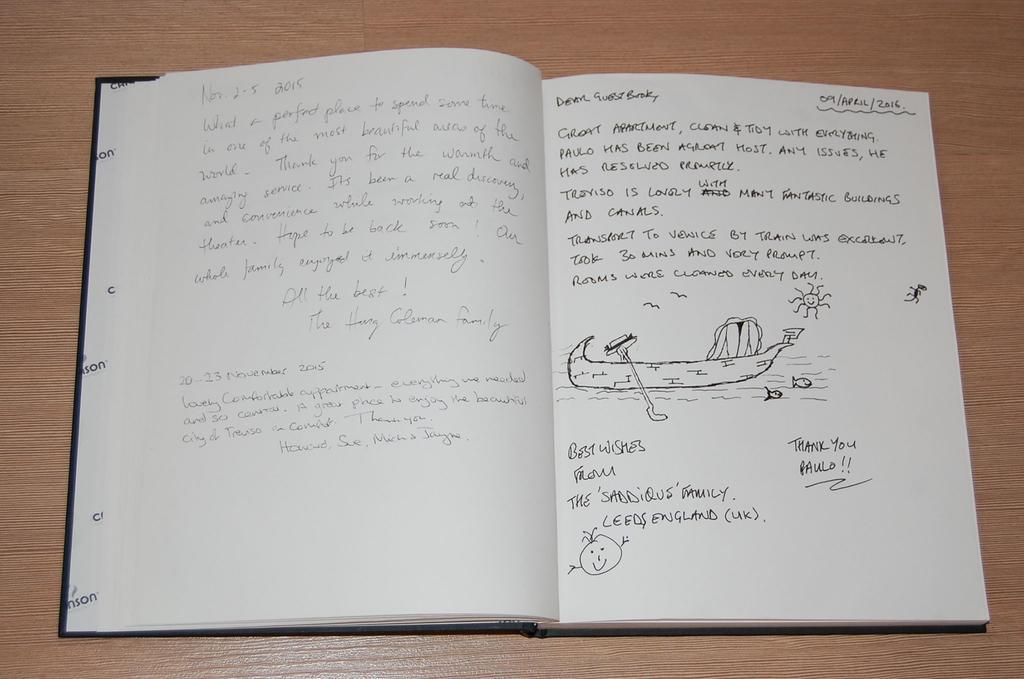 Nov. 2-5 2015
What a perfect place to spend some time
in one of the most beautiful areas of the
world. Thank you for the warmth and
amazing service. Its been a real discovery,
and convenience while working at the
theater. Hope to be back soon! Our
whole family enjoyed it immensely.
All the best!
The Coleman Family
20-23 November 2015
Lovely Comfortable appartment - everything we needed
and so central. A great place to enjoy the beautiful
city of Treviso in comfort. Thank you.
Howard, Sue,
DEAR GUEST BOOK,
09/APRIL/2016.
GREAT APARTMENT, CLEAN & TIDY WITH EVERYTHING.
PAULO HAS BEEN A GREAT HOST. ANY ISSUES, HE
HAS RESOLVED PROMPTLY.
TREVISO IS LOVELY WITH MANY FANTASTIC BUILDINGS
AND CANALS.
TRANSPORT TO VENICE BY TRAIN WAS EXCELLENT.
TOOK 30 MINS AND VERY PROMPT.
ROOMS WERE CLEANED EVERY DAY.
BEST WISHES
FROM
THE 'SADDIQUS' FAMILY.
LEEDS, ENGLAND (UK).
THANK YOU
PAULO!!
on
son
nson